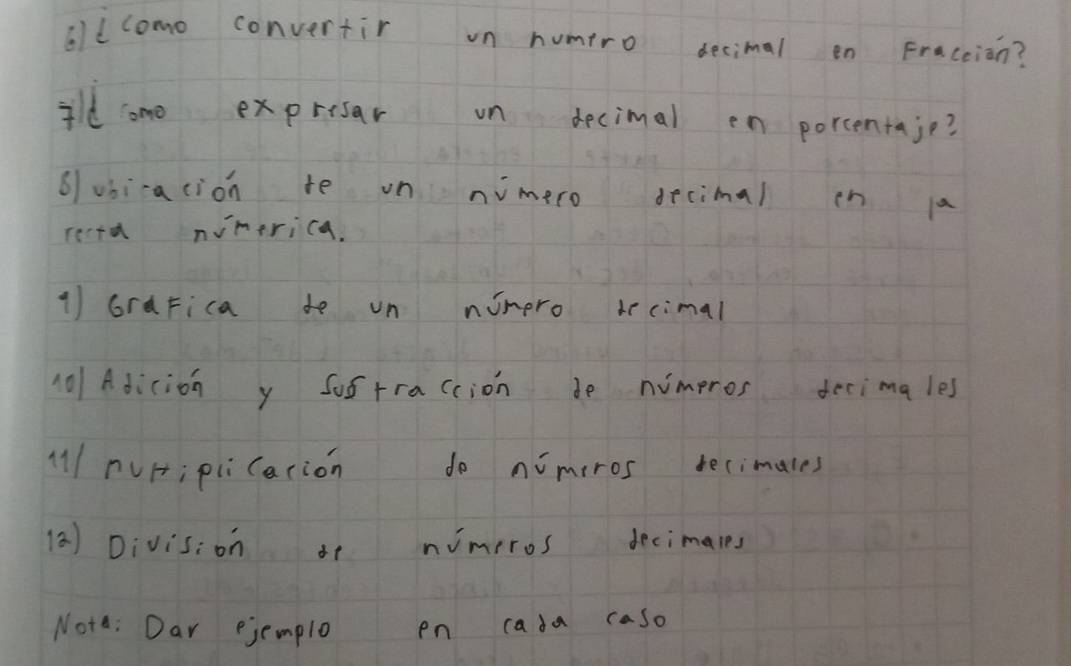 6) ¿como convertir un numero decimal en Fracción?
7) ¿como expresar un decimal en porcentaje?
8) ubicación de un número decimal en la
recta númerica.
9) Grafica de un número decimal
10) Adición y sustracción de números decimales
11) multiplicación de números decimales
12) División de números decimales
Nota: Dar ejemplo en cada caso